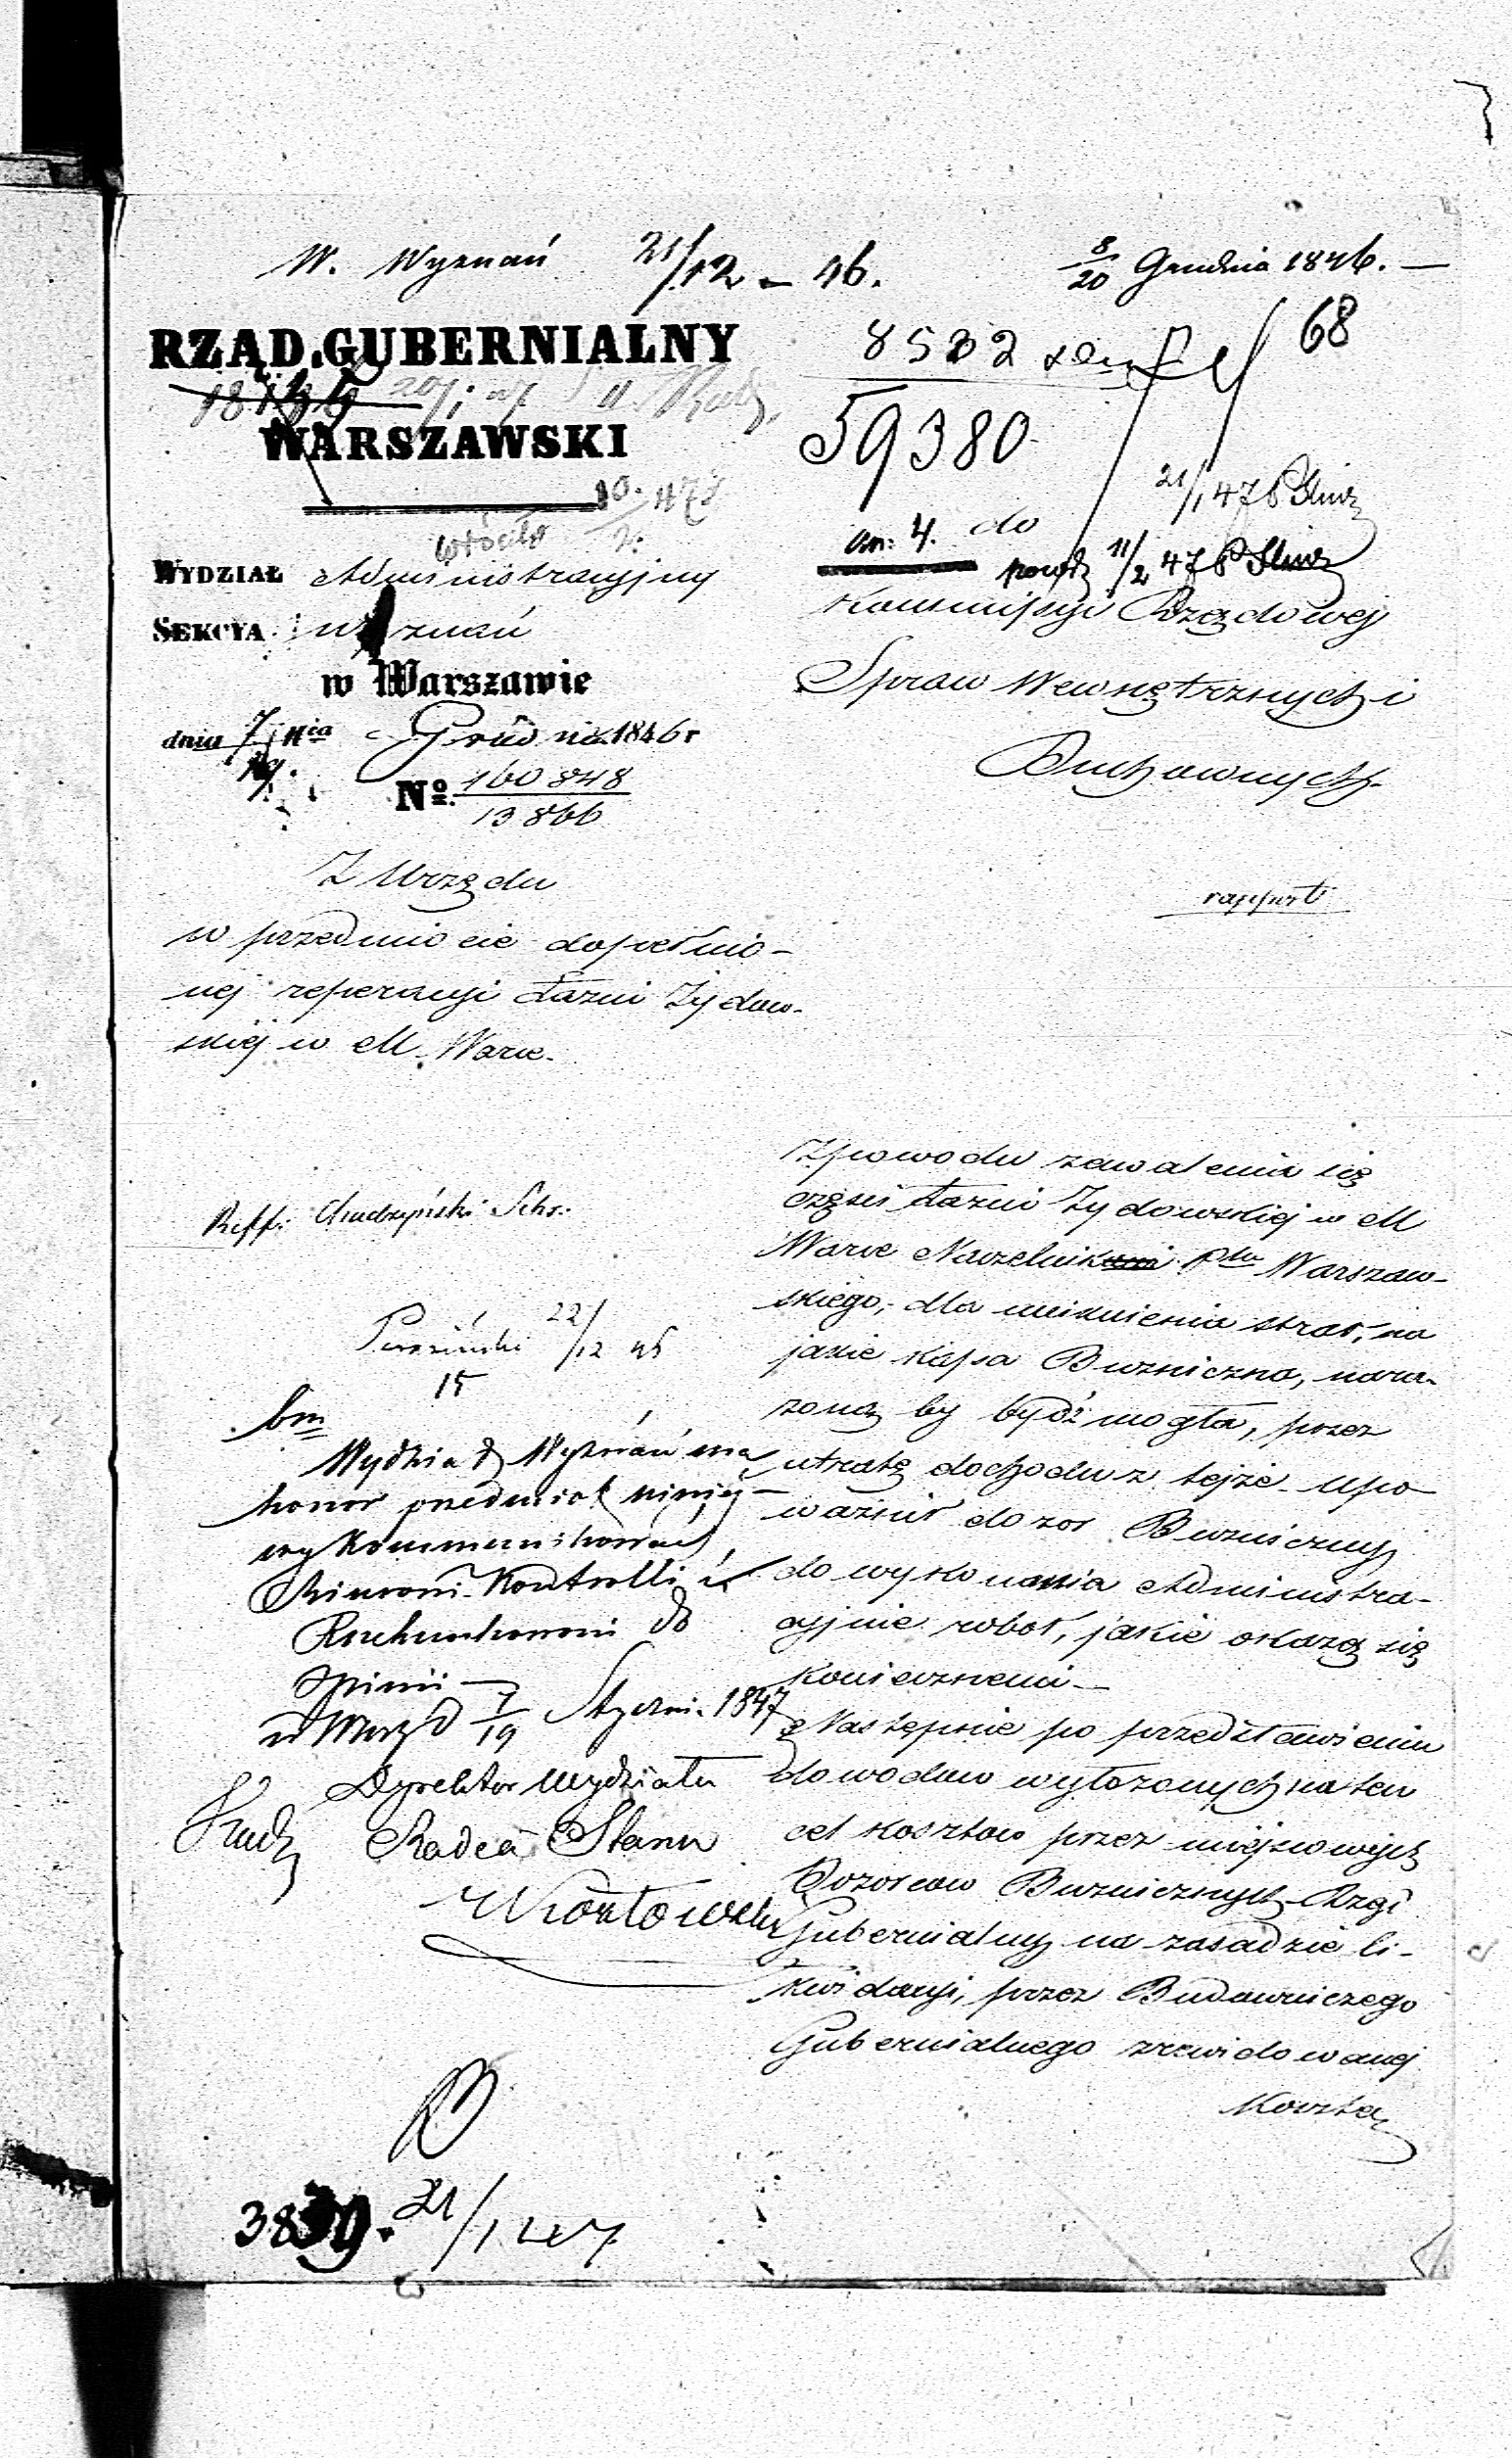 W. Wyznań 21/12 – 46.
8/20 Grudnia 1846. —
68
RZĄD GUBERNIALNY
WARSZAWSKI
59380
21/1 47
an: 4. do
11/2 47
WYDZIAŁ Administracyjny
SEKCYA Wyznań
w Warszawie
dnia 7/19 Grudnia 1846 r
No. 160848
13866
Kommissyi Rządowej
Spraw Wewnętrznych i
Duchownych.
Z Urzędu
w przedmiocie dopełnio-
nej reperacyi Łazni Żydow-
skiej w M. Warce.
rapport
Zpowodu zawalenia się
części Łazni Żydowskiej w M
Warce Naczelnik Ptu Warszaw-
skiego, dla uniknienia strat, na
jakie kassa Bużniczna, nara-
zoną by bydź mogła, przez
utratę dochodu z tejże upo
ważnił dozor Bużniczny
do wykonania Administra-
cyjnie robot, jakie okażą się
koniecznemi —
Następnie po przedstawieniu
dowodow wyłożonych na ten
cel kosztow przez miejscowych
Dozorcow Bużnicznych Rząd
Gubernialny na zasadzie li-
kwidacyi, przez Budowniczego
Gubernialnego zrewidowanej
Koszta
22/12 46
15
bm
Wydział Wyznań ma
honor przedmiot niniej-
szy kommunikować
Biurowi Kontrolli i
Rachunkowemu do
opinii —
w Warsz d 7/19 Styczni. 1847
Dyrektor Wydziału
Radca Stanu
3839. 21/1 47